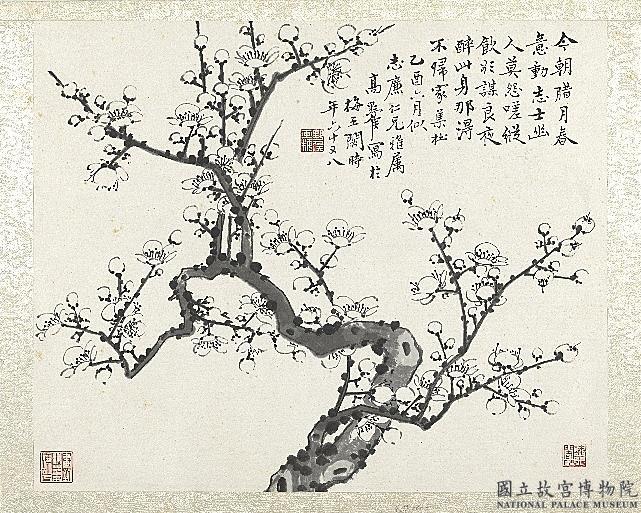 今朝臘月春
意動志士幽
人莫怨嗟從
飲於謀良夜
醉此身那得
不歸家集杜
乙酉六月似
志廉仁兄雅屬
高翠寫於
梅王閣時
年六十又八
國立故宮博物院
NATIONAL PALACE MUSEUM